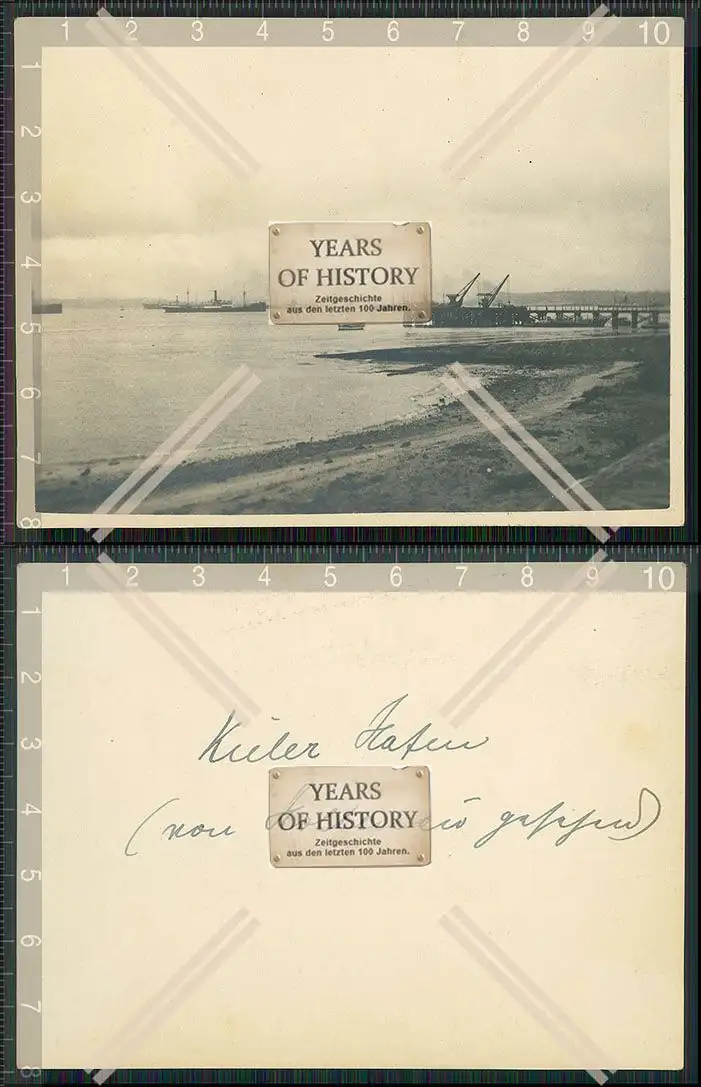 1 2 3 4 5 6 7 8 9 10
1
2
3
4
5
6
7
8
YEARS
OF HISTORY
Zeitgeschichte
aus den letzten 100 Jahren.
1 2 3 4 5 6 7 8 9 10
1
2
3
4
5
6
7
8
Kieler Hafen
(von aus gesehen)
YEARS
OF HISTORY
Zeitgeschichte
aus den letzten 100 Jahren.